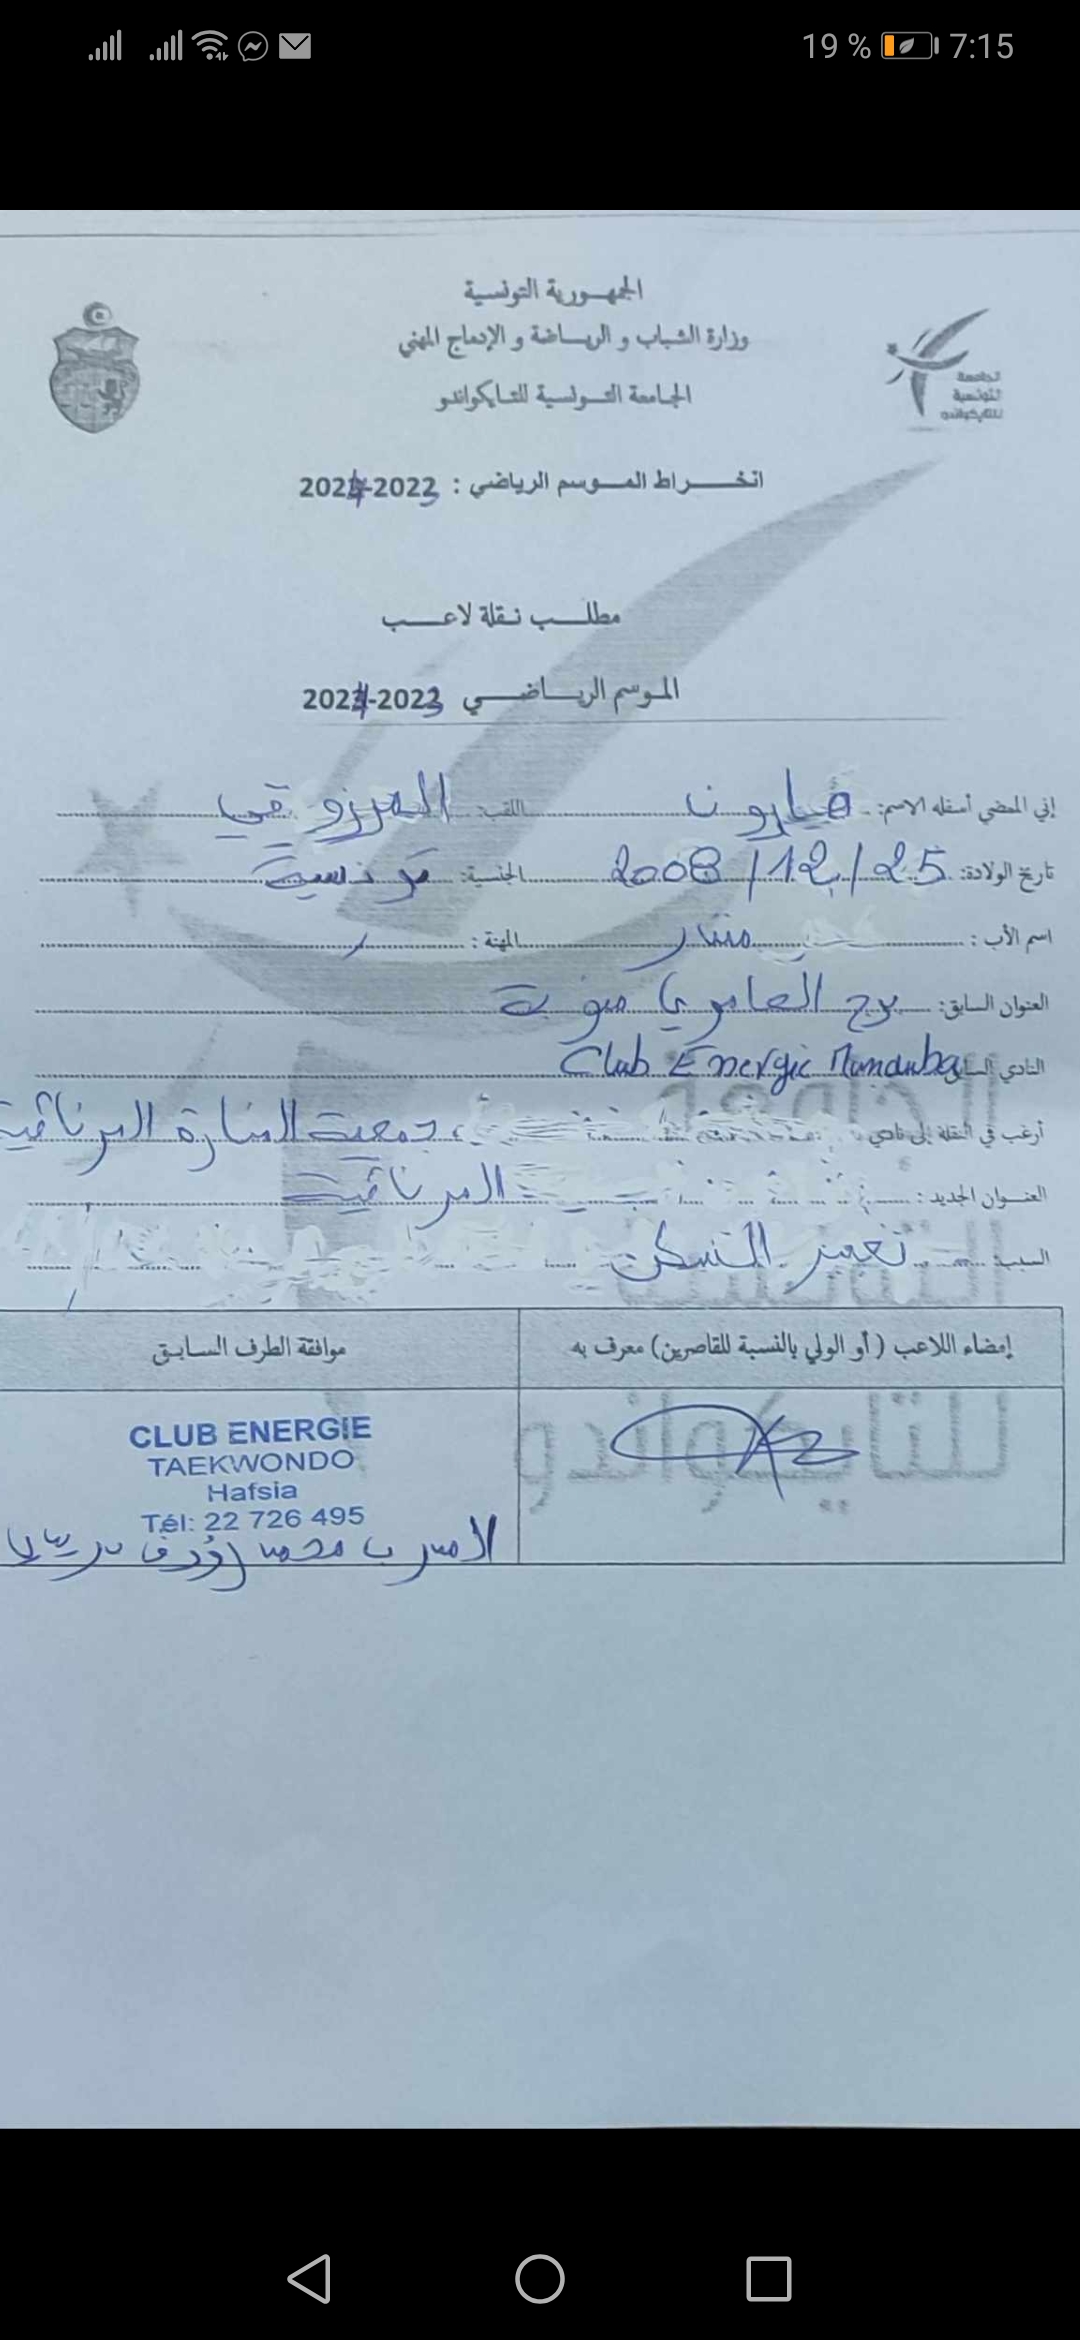 19 % 7:15
الجمهورية التونسية
وزارة الشباب و الرياضة و الإدماج المهني
الجامعة التونسية للتايكواندو
الجامعة
التونسية
للتايكواندو
انخراط الموسم الرياضي : 2023-2024
مطلب نقلة لاعب
الموسم الرياضي 2023-2024
إني الممضي أسفله الاسم: هارون اللقب: المرزوقي
تاريخ الولادة: 25/12/2008 الجنسية: تونسية
اسم الأب : المهنة : /
العنوان السابق: برج العامري منوبة
النادي السابق Club Energie Manouba
أرغب في النقلة إلى نادي جمعية المنارة المرناقية
العنوان الجديد : المرناقية
السبب: تغيير السكن
إمضاء اللاعب ( أو الولي بالنسبة للقاصرين) معرف به
موافقة الطرف السابق
CLUB ENERGIE
TAEKWONDO
Hafsia
Tél: 22 726 495
المدرب محمد